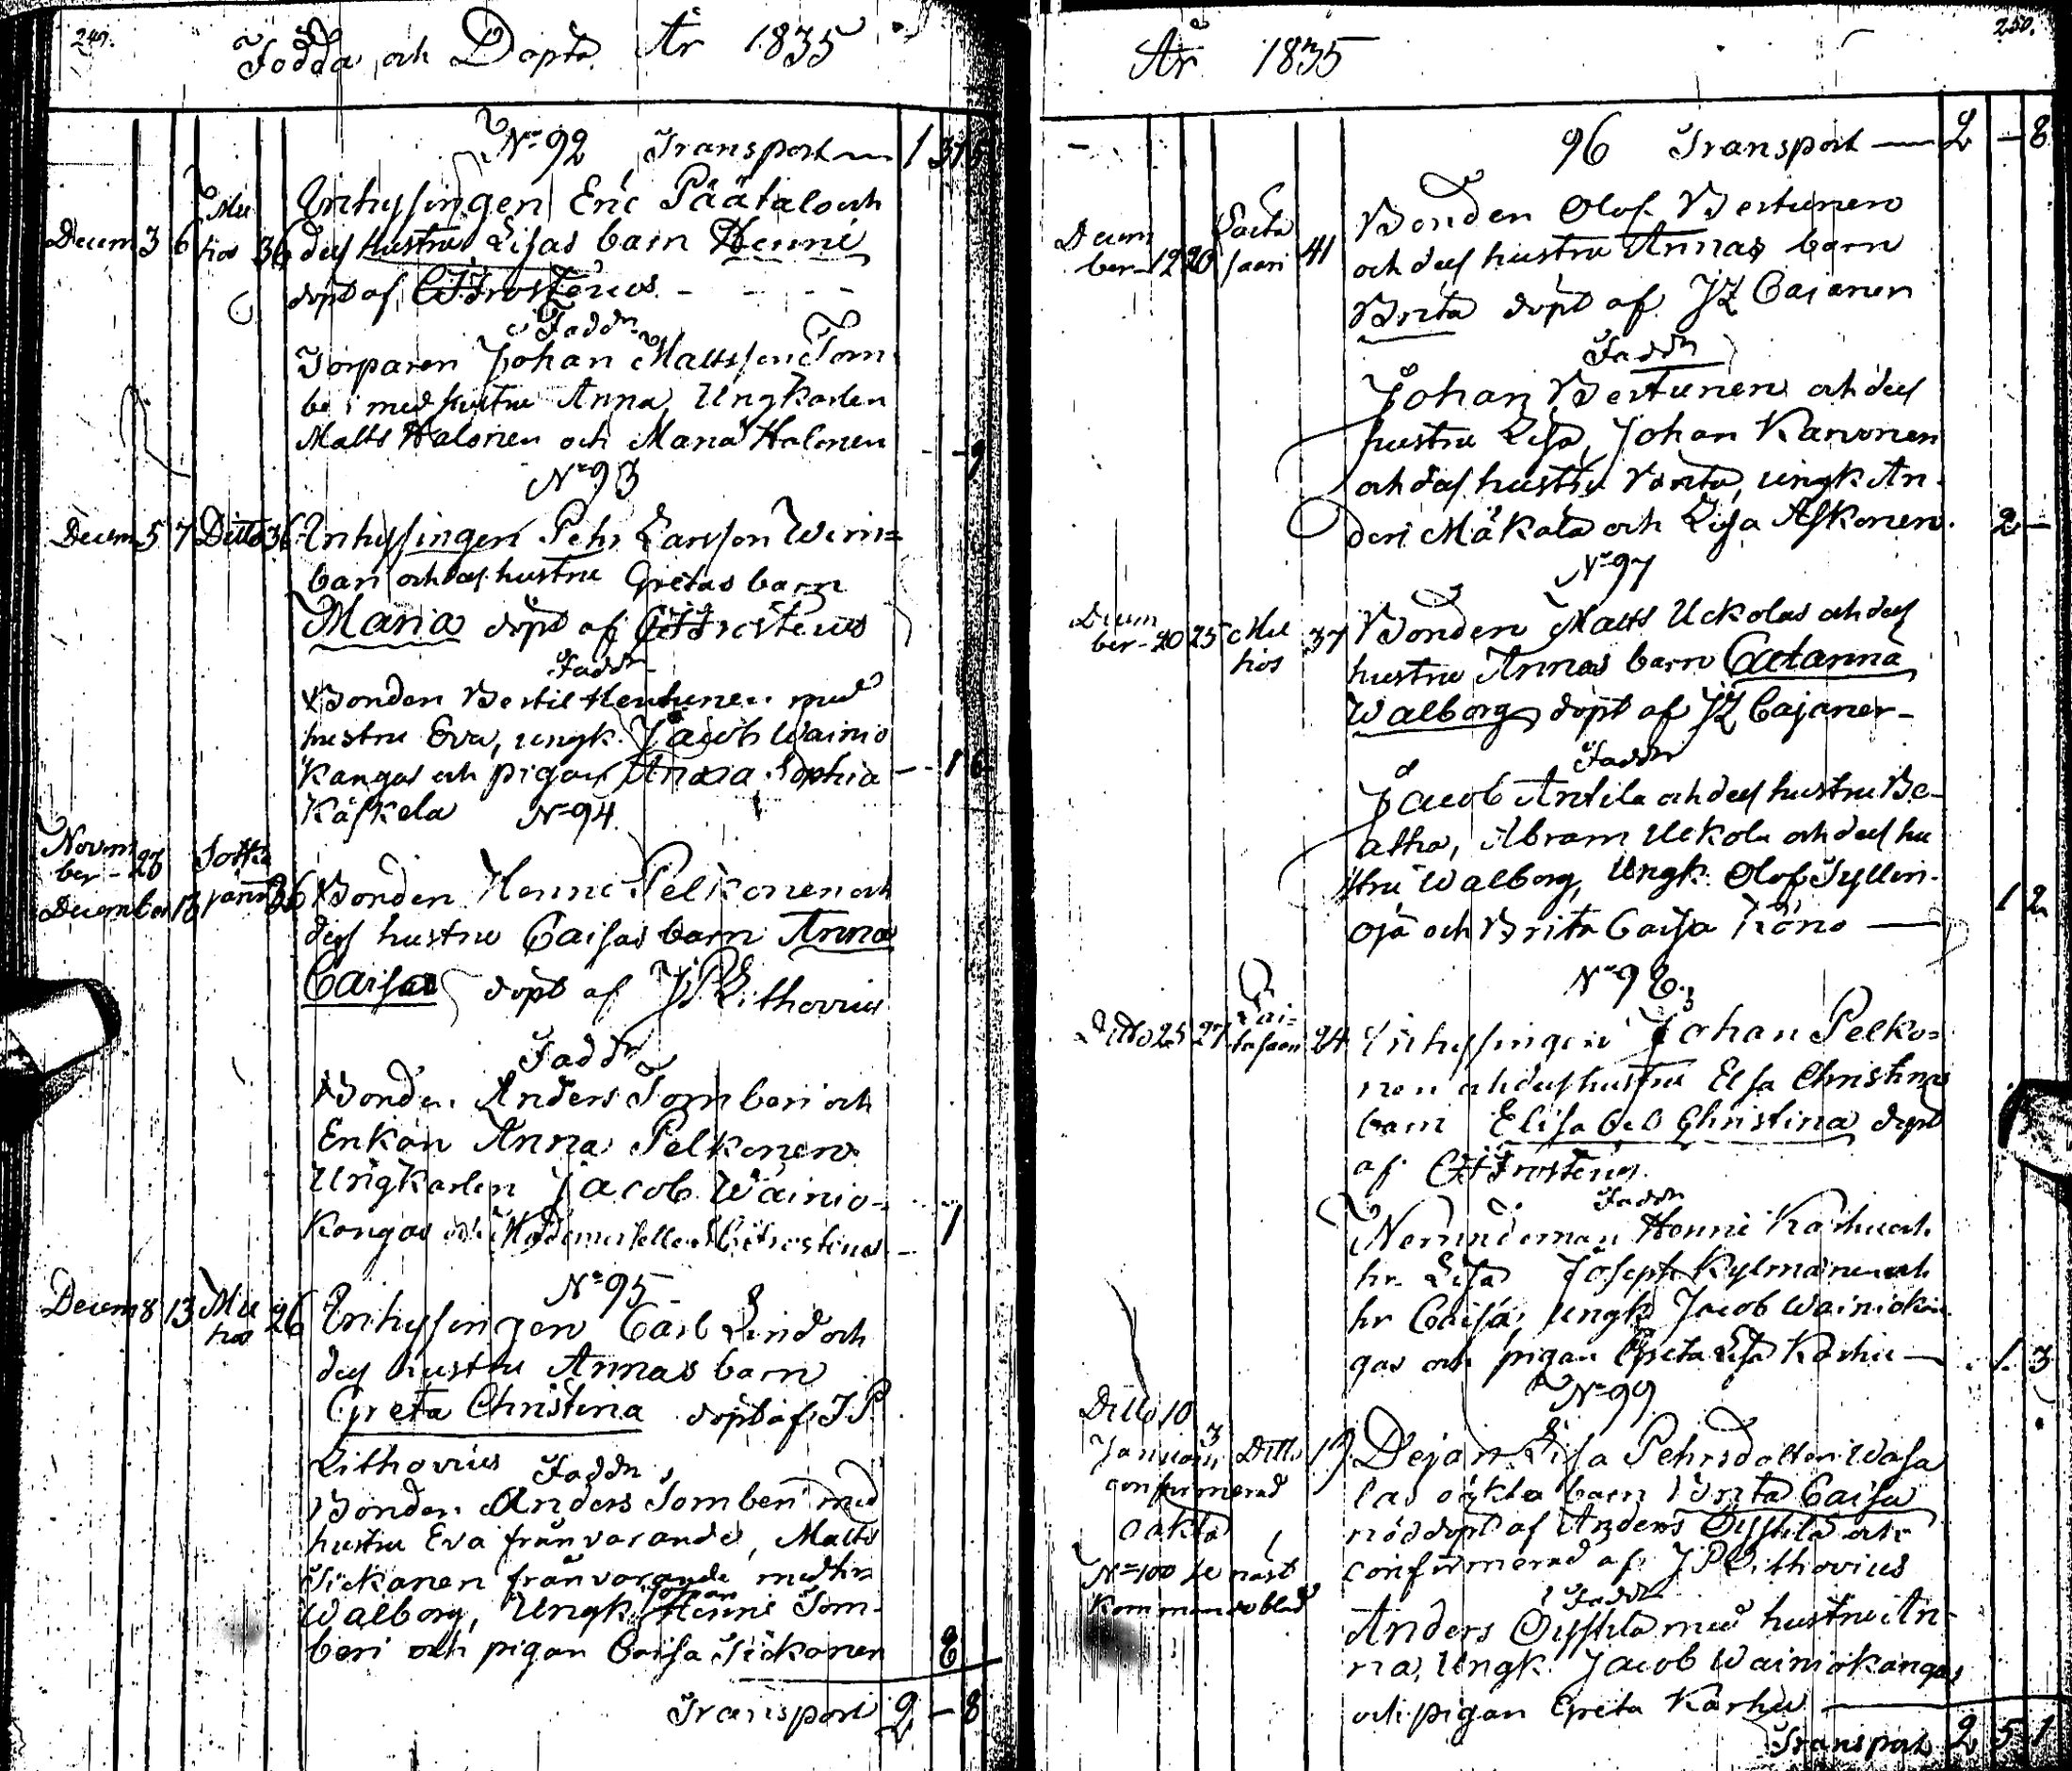 249.
Födda och Döpta År 1835
No 92 Transport 1 37 5
Inhysingen Eric Päätalo och
Decem 3 6 Mu
hos 36 dess hustru Lisas barn Henric
döpt af CFFrosterus
Faddr
Torparen Johan Mattsson Tom
be i med hustru Anna, Ungkarlen
Matts Halonen och Maria Halonen - - 9
No 93
Decem 5 7 Ditto 36 Inhysingen Pehr Larsson Wirn=
bari och dess hustru Gretas barn
Maria döpt af CFFrosterus
Faddr
Bonden Bertil Hentunen med
hustru Eva, ungk. Jacob Wainio
Kangas och pigan Anna Sophia - 1 6
Käskela No 94
Novem
ber - 28 Sotka
December 18 36 Bonden Henric Pelkonen och
dess hustru Caisas barn Anna
Caisa döpt af JPLithovius
Faddr
Bonden Anders Tomberi och
Enkan Anna Pelkonen
Ungkarlen Jacob Wainio-
Kangas och Mademoisellen CFrosterus - 7
No 95
Decem 8 13 Mu
hos 26 Inhysingen Carl Lind och
dess hustru Annas barn
Greta Christina döpt af JP
Lithovius Faddr
Bonden Anders Tomberi med
hustru Eva frånvarande, Matts
Tickanen frånvarande med hr
Walborg, Ungk. Johan Henric Tom-
beri och pigan Caisa Tickanen 8
Transport 2 - 8
250.
År 1835
96 Transport 2 - 8
Decem
ber 12 20 saari 41 Bonden Olof Bertunen
och dess hustru Annas barn
Brita döpt af JZ Cajaner
Faddr
Johan Bertunen och dess
hustru Lisa, Johan Karvonen
och dess hustru Brita, ungk An-
ders Mäkälä och Lisa Askonen. 2 -
No 97
Decem
ber - 20 25 Mu
hos 37 Bonden Matts Uckolas och dess
hustru Annas barn Catarina
Walborg döpt af JZ Cajaner -
Faddr
Jacob Antila och dess hustru Be-
atha, Abram Uckola och dess hu
stru Walborg, Ungk. Olof Syllin-
oja och Brita Caisa 1 2
No 98
Ditto 25 27 24 Inhysingen Johan Pelko=
nen och dess hustru Elsa Christinas
barn Elisa Christina döpt
af CFFrosterus.
Faddr
Nemndeman Henric Karhu och
hr Lisa Joseph Kylmänen och
hr Caisa, Ungk Jacob Wainiokan
gas och pigan Greta Lisa Karhu - 1 3
No 99
Ditto 10
3
Januari Ditto 19 Dejan Lisa Pehrsdotter Wasa
confirmerad
las oäkta barn Brita Caisa
oäkta
nöddöpt af Anders och
No 100 se näst
confirmerad af JPLithovius
kommande blad
Faddr
Anders med hustru An-
na, Ungk. Jacob Wainiokangas
och pigan Greta Karhu
Transport 2 5 1